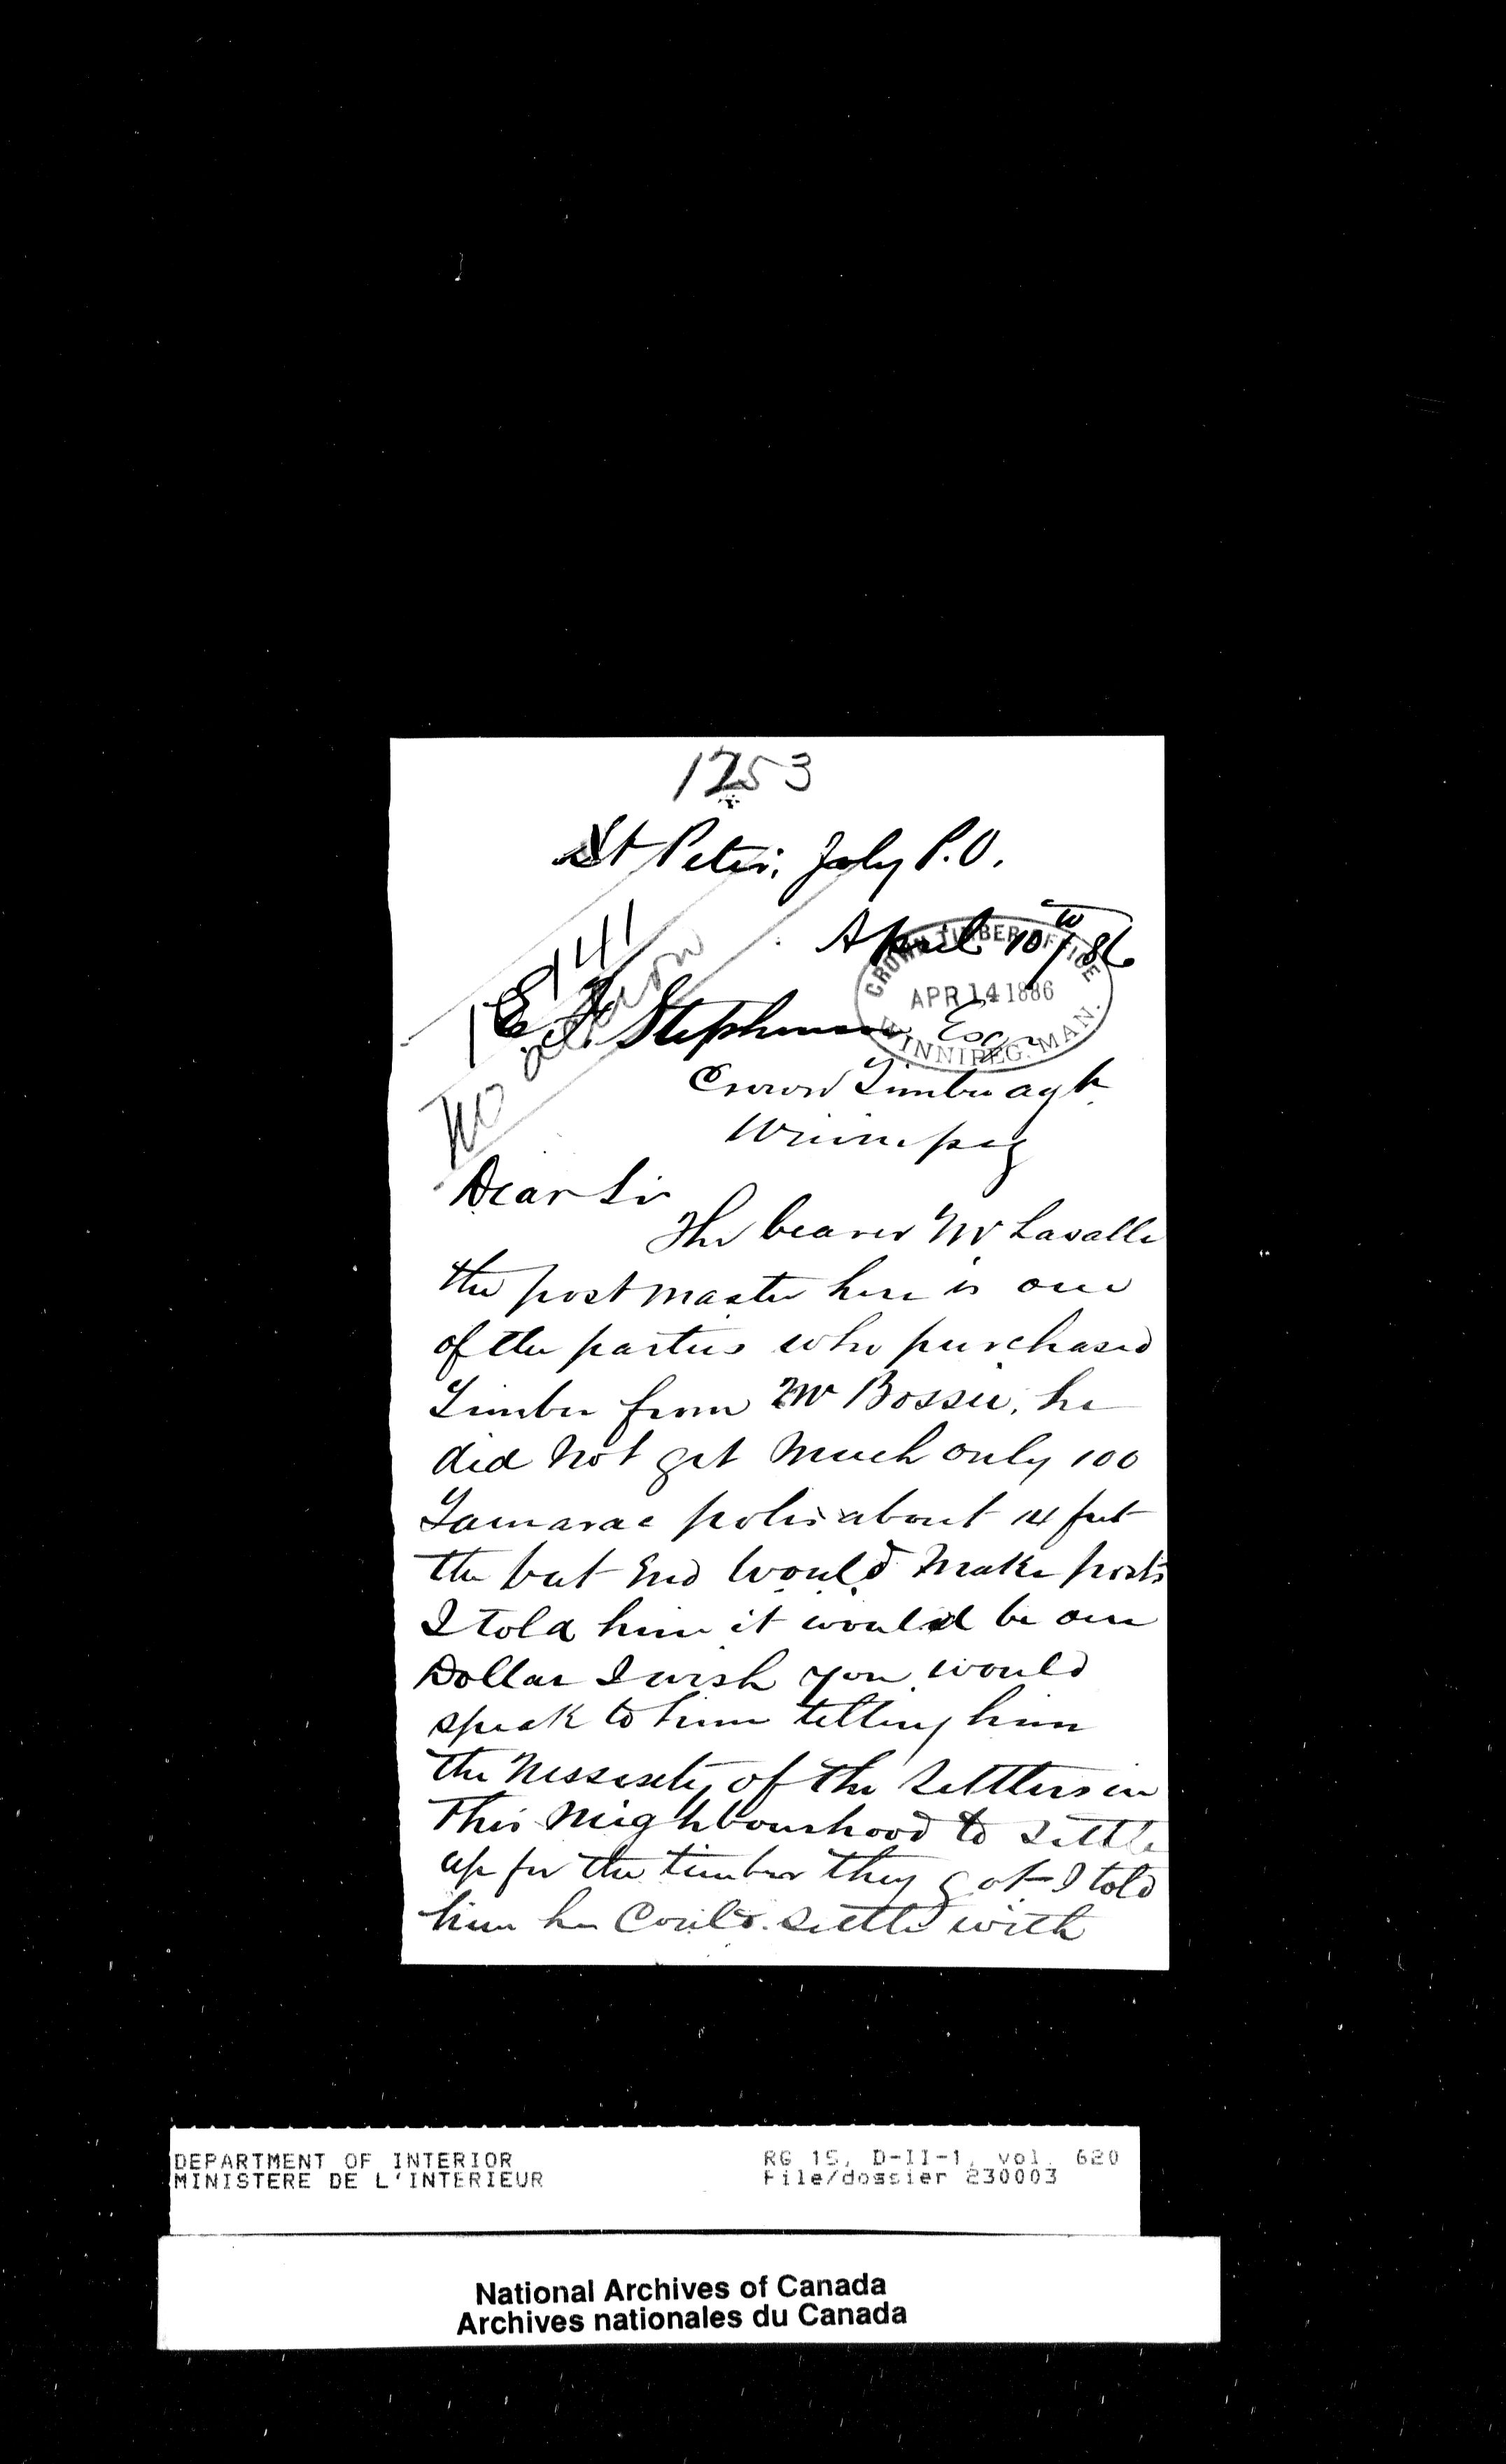 1253
St Peter, Joly P.O.
April 10/86
CROWN TIMBER OFFICE
APR 14 1886
WINNIPEG. MAN.
141
No action
E. F. Stephenson Esqr
Crown Timber agt.
Winnipeg
Dear Sir
The bearer Mr Lavalle
the post master here is one
of the parties who purchased
Timber from Mr Bossie, he
did not get Much only 100
Tamarac poles about 14 feet
the but End Would Make posts
I told him it would be one
Dollar I wish you would
speak to him telling him
the Nessesety of the Settlers in
This Neighbourhood to settle
up for the timber they got I told
him he Could settle with
DEPARTMENT OF INTERIOR
MINISTERE DE L'INTERIEUR
RG 15, D-II-1, vol. 620
File/dossier 230003
National Archives of Canada
Archives nationales du Canada